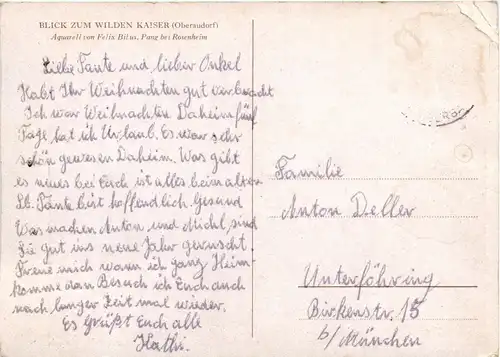 BLICK ZUM WILDEN KAISER (Oberaudorf)
Aquarell von Felix Bilus, Pang bei Rosenheim
Liebe Tante und lieber Onkel
Habt Ihr Weihnachten gut verbracht
Ich war Weihnachten Daheim fünf
Tage hat ich Urlaub. Es war sehr
schön gewesen Daheim. Was gibt
es neues bei Euch ist alles beim alten
Lb. Tante bist hoffendlich Gesund
Was machen Anton und Michl, sind
Sie gut ins neue Jahr gerutscht.
Freue mich wann ich ganz Heim-
komme dan Besuch ich Euch auch
nach langer Zeit mal wieder.
Es Grüßt Euch alle
Kathi.
Familie
Anton Deller
Unterföhring
Birkenstr. 15
b/München